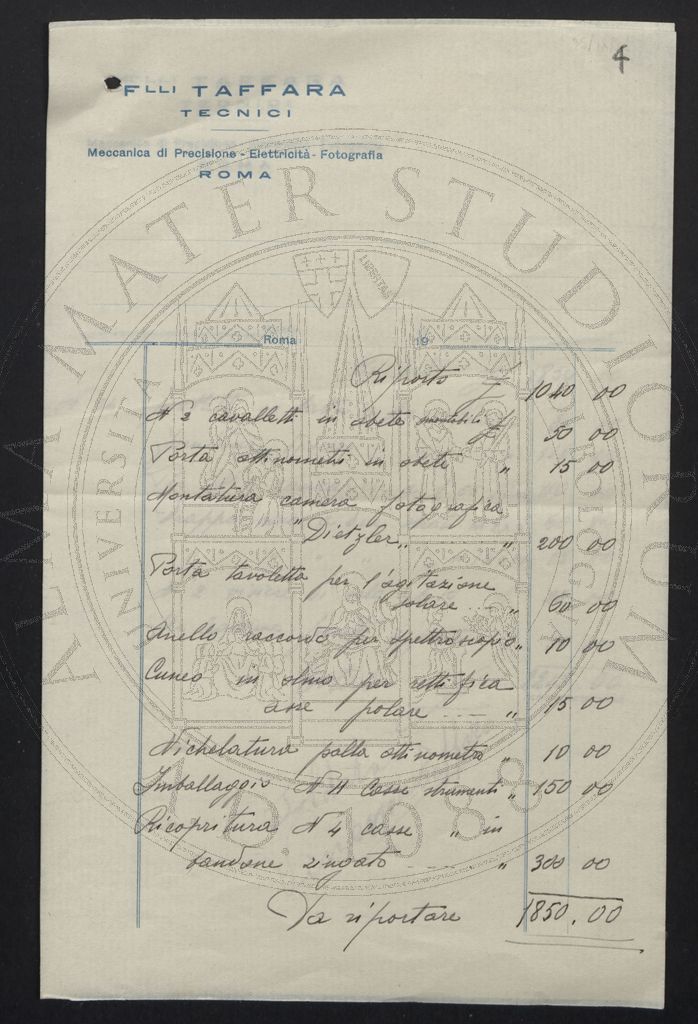 4
Flli TAFFARA
TECNICI
Meccanica di Precisione - Elettricità - Fotografia
ROMA
ALMA MATER STUDIORUM
UNIVERSITA DI BOLOGNA
A.D. 1088
Roma 19
Riporto £ 1040 00
N 2 cavalletti in abete smontabili £ 50 00
Porta attinometri in abete " 15 00
Montatura camera fotografica
"Dietzler" " 200 00
Porta tavoletta per l'agitazione
solare " 60 00
Anello raccordo per spettroscopio " 10 00
Cuneo in olmo per rettifica
asse polare " 15 00
Nichelatura palla attinometro " 10 00
Imballaggio N 11 Casse strumenti " 150 00
Ricopritura N 4 casse " in
bandone zingato " 300 00
Da riportare 1850.00